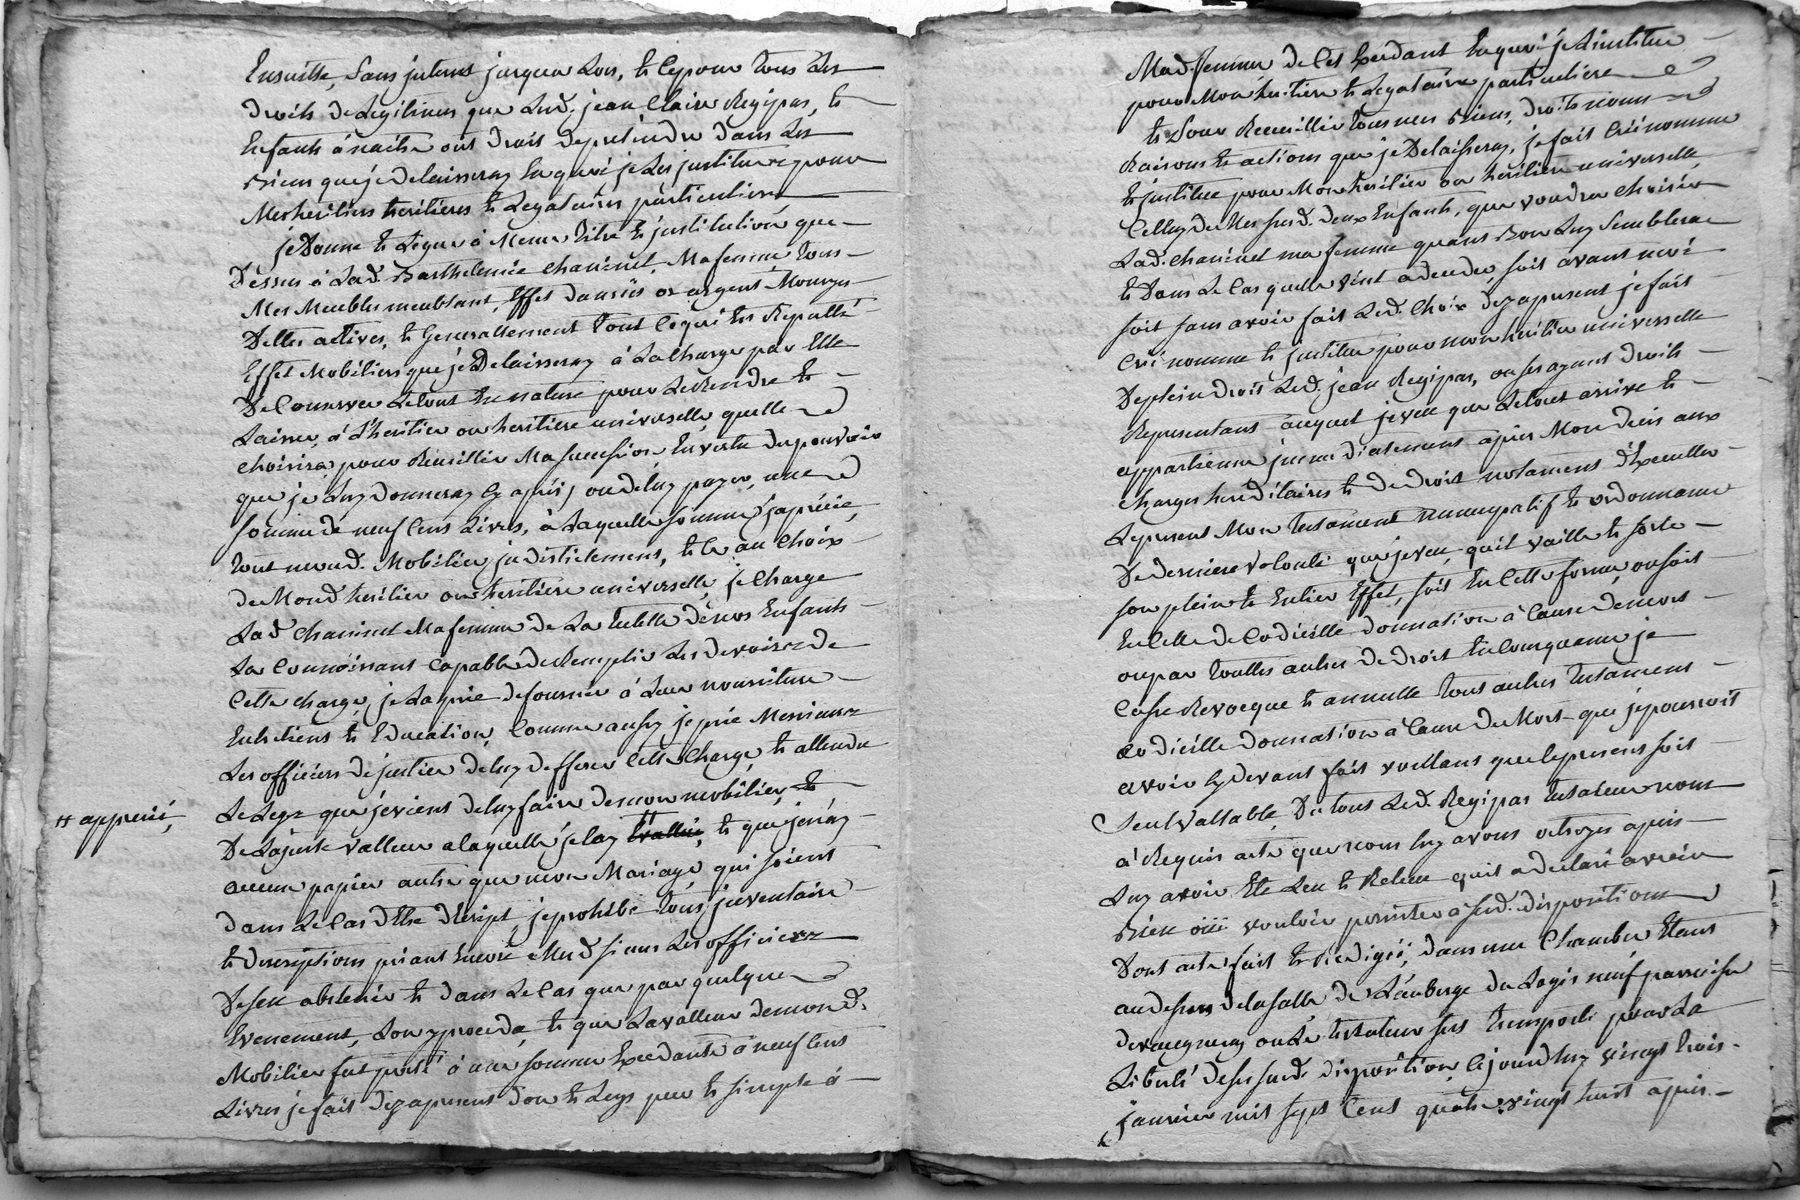 Ensuitte, sans interest jusques Lors, et ce pour tous les
droits de Legitimes que Lesd. jean Claire Regipas, et
Enfants á naitre ont droit de pretendre dans Les
Biens que je delaisseray En quoi je Les jnstitue pour
Mes heritiers heritieres et Legataires particuliers
je Donne et Legue á Meme titre et jnstitution que
Dessus á Lad. Barthelemie chaninet, Ma femme tous
Mes Meubles meublant, Effet danrées or argent Monoyé
Dettes actives, et Generallement tout Ce qui Est Reputté
Effet Mobiliers que je Delaisseray á La charge par Elle
De Conserver Le tout En nature pour Le Rendre et
Laisser, á L'heritier ou heritiere universelle quelle
choisira pour Recuillir Ma succession En vertu du pouvoir
que je Luy Donneray Cy aprés, ou de luy payer, une
somme de neuf Cens Livres, á Laquelle somme j'aprécie,
tout mond. Mobilier jndistictement, et Ce au Choix
de Mond heritier ou heritiere universelle, je Charge
Lad Chaninet Ma femme de La tutelle de nos Enfants
La Connoissant Capable de Remplir Les devoirs de
Cette charge, je La prie de fournir á Leur nourriture
Entretiens et Education, Comme aussy je prie Messieurs
Les officiers de justice de luy defferer Cette Charge, et attendu
Le Legs que je viens de luy faire de mon mobilier, et
# apprecié,
De La juste valleur a laquelle je lay Evallué, et que je n'ay
aucun papier autre que mon Mariage qui soient
dans Le Cas d'Etre décript, je prohibe tous jnventaire
et descriptions priant Encore Mesd sieurs Les officiers
De sen abstenir et dans Le Cas que par quelque
Evenement, Lon y proceda et que La valleur de mond.
Mobilier fut porté á une somme Excedante á neuf Cens
Livres je fait dez a present don et Legs pur et simple á
Mad. femme de Cet Excedant En quoi je L'institue
pour Mon heritiere et Legataire particuliere
et Pour Recuillir tous mes Biens, droits noms
Raisons et actions que je Delaisseray, je fait Crée nomme
et jnstitue pour Mon heritier ou heritiere universelle
Celluy de Mes susd. deux Enfants, que voudra choisir
Lad. chaninet ma femme quand Bon Luy Semblera
et Dans Le Cas quelle vint a deceder, soit avant moi
soit sans avoir fait Led. Choix dez a present je fait
Crée nomme et jnstitue pour mon heritier universelle
De plein droit Led. jean Regipas, ou ses ayant droit
Representans auquel je veut que Le tout arrive et
appartienne jmmediatement aprés Mon deces aux
charges hereditaires et de droit notament d'Executter
Le present Mon testament nuncupatif et ordonnance
De derniere volonté que je veut quil vaille et sorte
son plein et Entier Effet, soit En Cette forme, ou soit
En Celle de Codicille donnation á Cause de mort
ou par touttes autres de droit En Consequence je
Casse Revocque et annulle tous autres testament
Codicille donnation á Cause de Mort que je pourroit
avoir Cy devant fait voullans que le present soit
seul vallable, De tous Led. Regipas testateur nous
á Requis acte que nous luy avons octroyés aprés
Luy avoir Ete Leu et Releu quil a declaré avoir
Bien oüi vouloir persister á sesd. dispositions
Dont acte fait et Redigée, dans une Chambre Etant
au dessus de la salle de L'auberge du Logis neuf parroisse
de vaugneray ou Le testateur sest transporté pour La
Liberté de ses susd. disposition, Cejourdhuy vingt trois
janvier mil sept Cens quatre vingt huit aprés